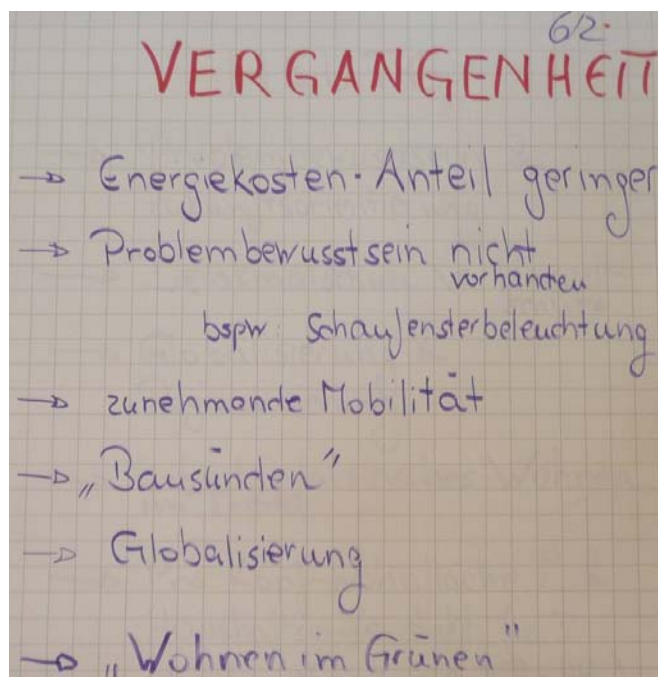 62.
VERGANGENHEIT
→ Energiekosten-Anteil geringer
→ Problembewusstsein nicht
vorhanden
bspw. Schaufensterbeleuchtung
→ zunehmende Mobilität
→ „Bausünden"
→ Globalisierung
→ „Wohnen im Grünen"